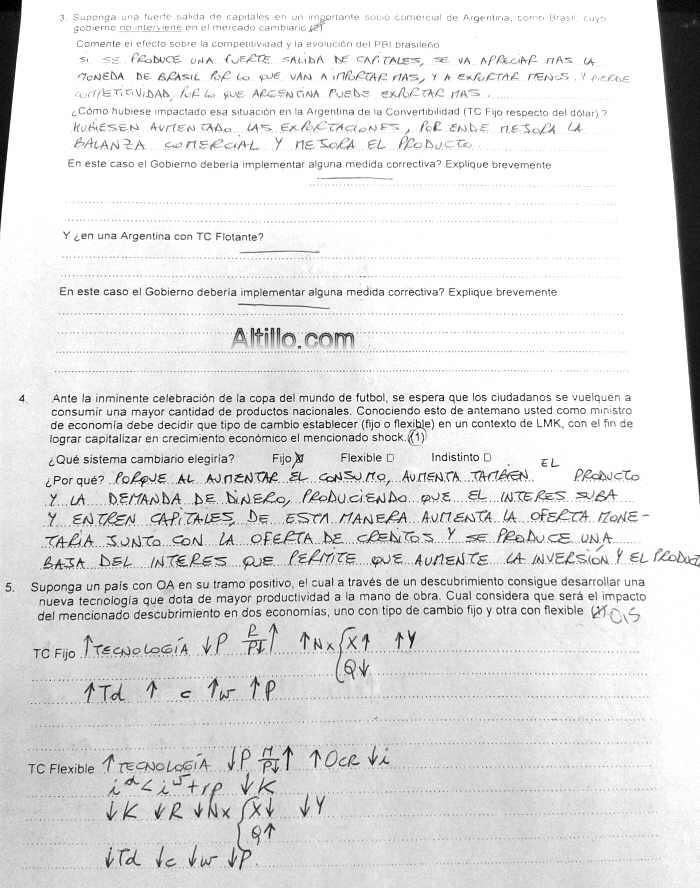 3. Suponga una fuerte salida de capitales en un importante socio comercial de Argentina, como Brasil, cuyo
gobierno no interviene en el mercado cambiario
Comente el efecto sobre la competitividad y la evolución del PBI brasileño
SI SE PRODUCE UNA FUERTE SALIDA DE CAPITALES, SE VA APRECIAR MAS LA
MONEDA DE BRASIL POR LO QUE VAN A IMPORTAR MAS, Y A EXPORTAR MENOS. Y PIERDE
COMPETITIVIDAD, POR LO QUE ARGENTINA PUEDE EXPORTAR MAS.
¿Cómo hubiese impactado esa situación en la Argentina de la Convertibilidad (TC Fijo respecto del dólar) ?
HUBIESEN AUMENTADO LAS EXPORTACIONES, POR ENDE MEJORA LA
BALANZA COMERCIAL Y MEJORA EL PRODUCTO
En este caso el Gobierno debería implementar alguna medida correctiva? Explique brevemente
Y ¿en una Argentina con TC Flotante?
En este caso el Gobierno debería implementar alguna medida correctiva? Explique brevemente
Altillo.com
4. Ante la inminente celebración de la copa del mundo de futbol, se espera que los ciudadanos se vuelquen a
consumir una mayor cantidad de productos nacionales. Conociendo esto de antemano usted como ministro
de economía debe decidir que tipo de cambio establecer (fijo o flexible) en un contexto de LMK, con el fin de
lograr capitalizar en crecimiento económico el mencionado shock. (1)
¿Qué sistema cambiario elegiría? Fijo ☒ Flexible □ Indistinto □
¿Por qué? PORQUE AL AUMENTAR EL CONSUMO, AUMENTA TAMBIEN EL PRODUCTO
Y LA DEMANDA DE DINERO, PRODUCIENDO QUE EL INTERES SUBA
Y ENTREN CAPITALES, DE ESTA MANERA AUMENTA LA OFERTA MONE-
TARIA JUNTO CON LA OFERTA DE CREDITOS Y SE PRODUCE UNA
BAJA DEL INTERES QUE PERMITE QUE AUMENTE LA INVERSION Y EL PRODUCT
5. Suponga un país con OA en su tramo positivo, el cual a través de un descubrimiento consigue desarrollar una
nueva tecnología que dota de mayor productividad a la mano de obra. Cual considera que será el impacto
del mencionado descubrimiento en dos economías, uno con tipo de cambio fijo y otra con flexible 0,5
TC Fijo ↑TECNOLOGÍA ↓P ↑ ↑Nx { X↑ ↑Y
Q↓
↑Td ↑ c ↑w ↑P
TC Flexible ↑TECNOLOGÍA ↓P M/P↓ ↑ ↑OCR ↓i
↓K
↓K ↓R ↓Nx { X↓ ↓Y
Q↑
↓Td ↓c ↓w ↓P.